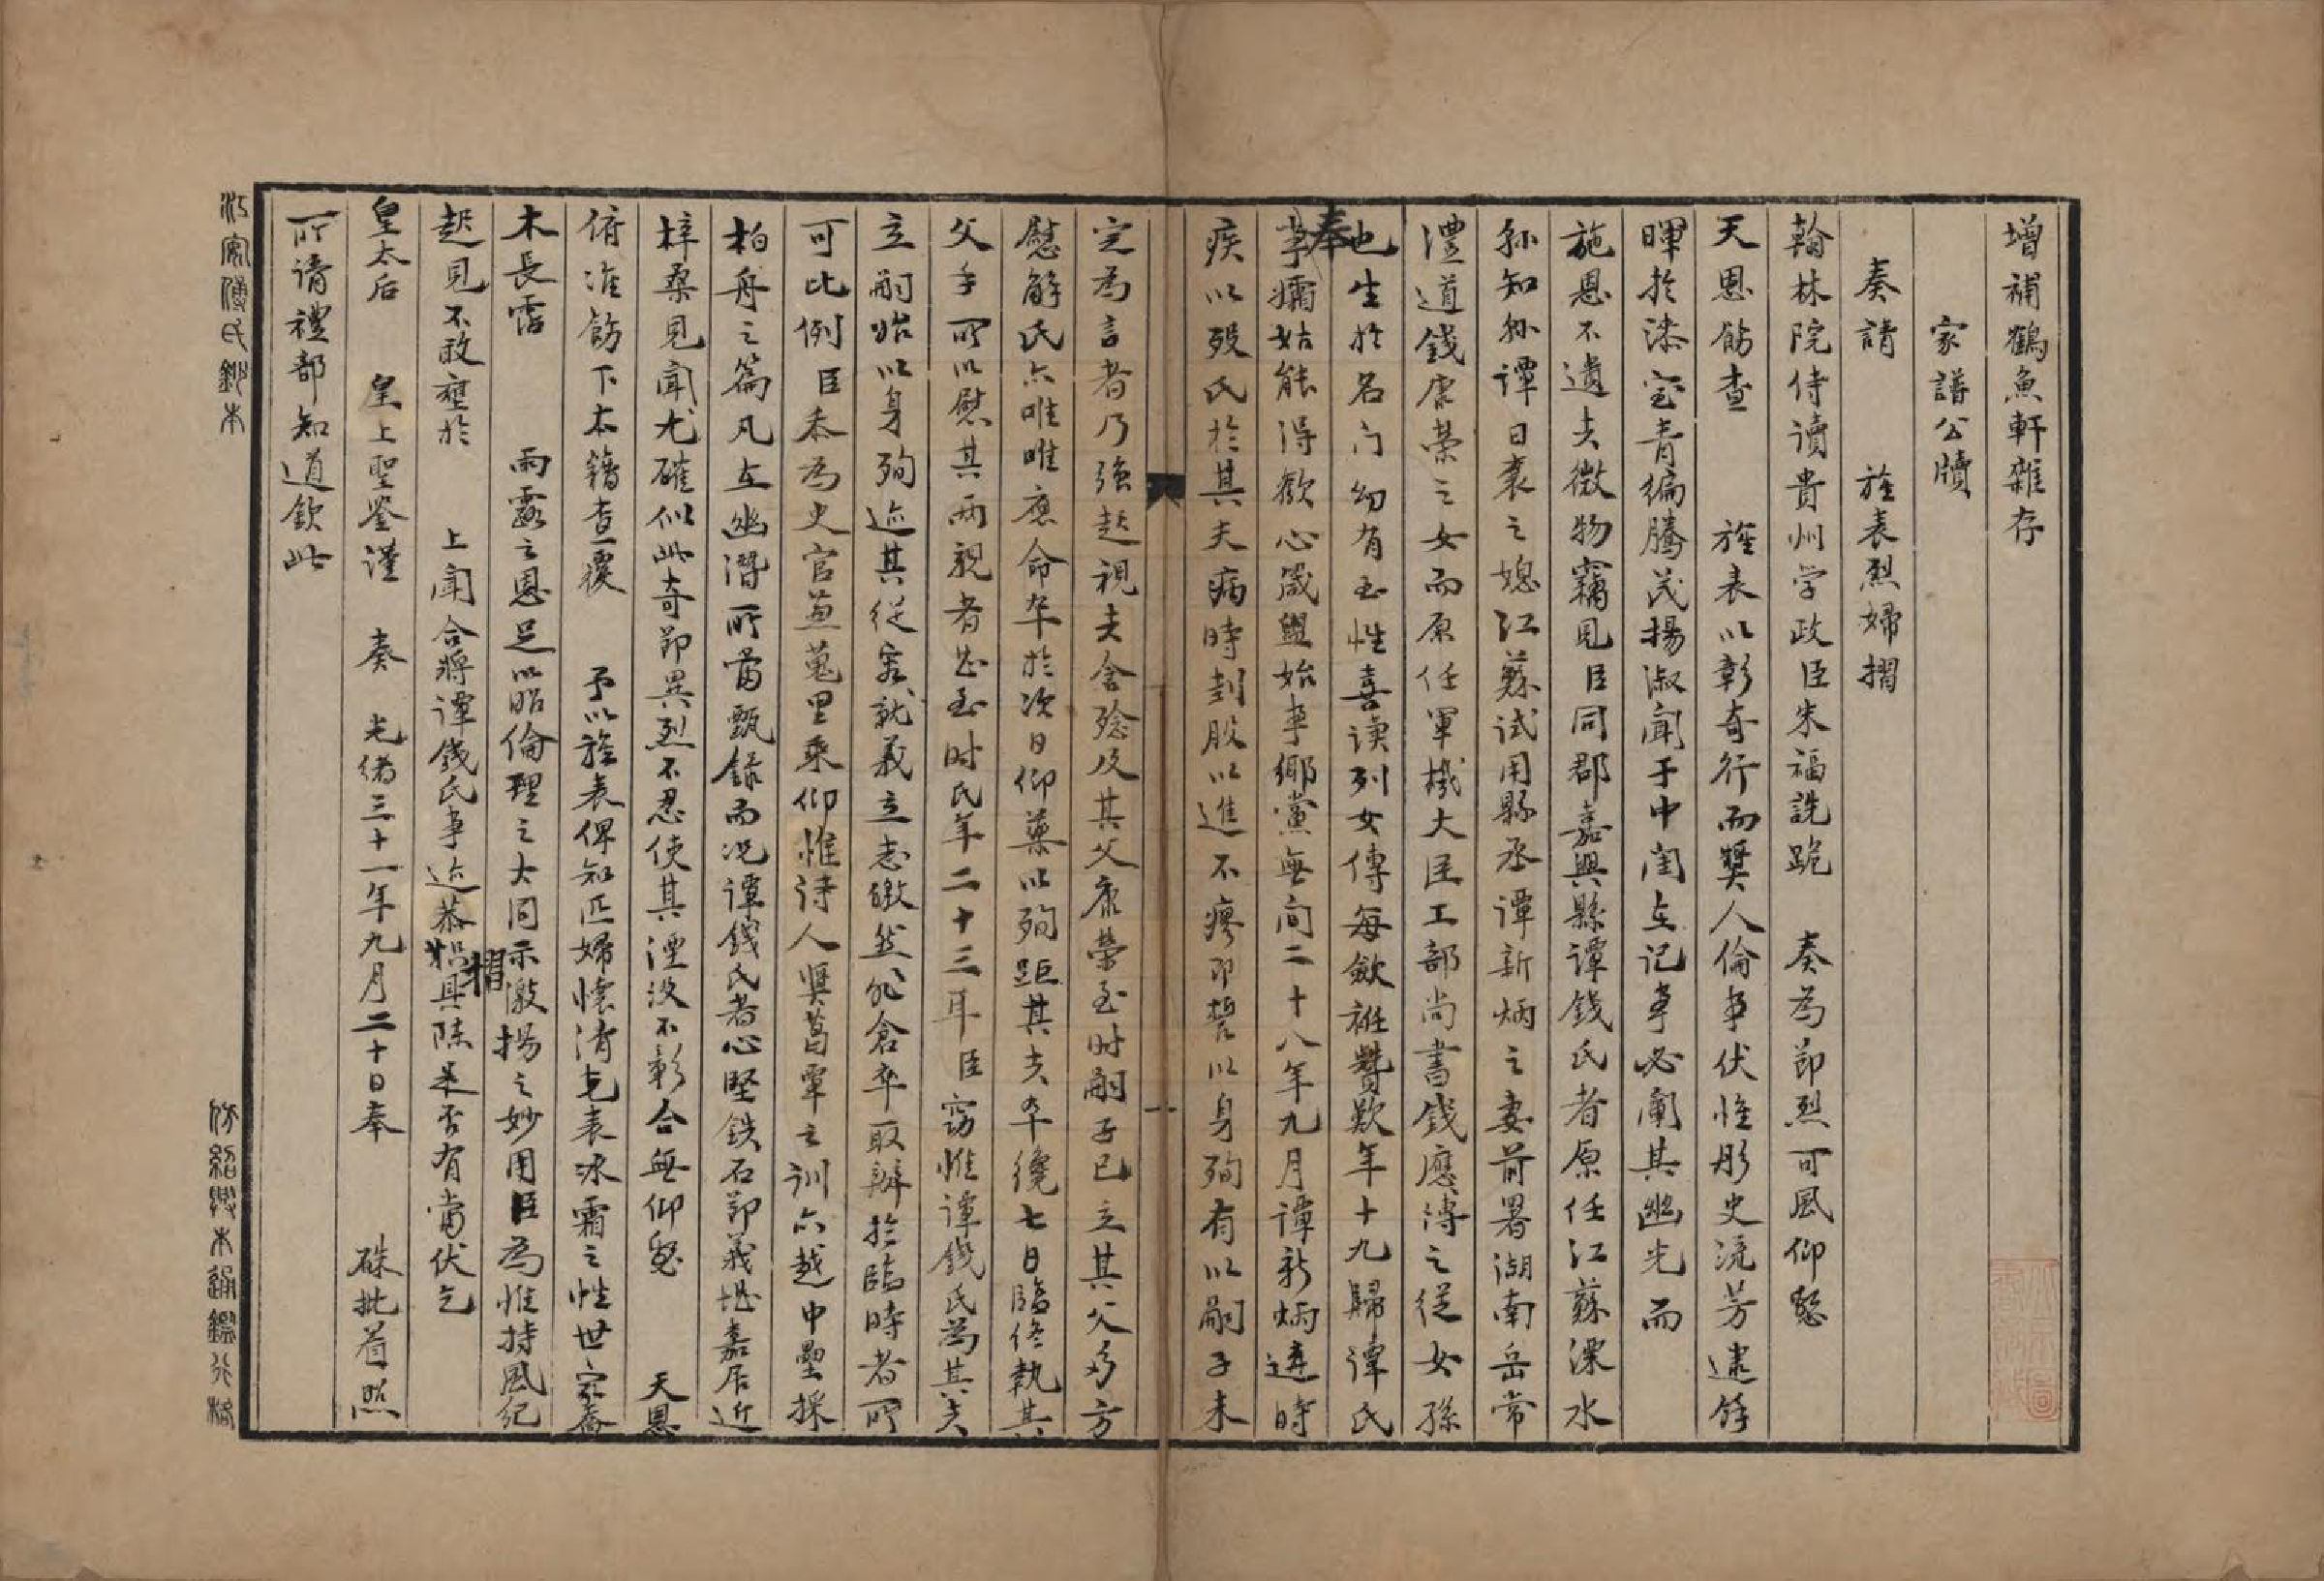 增補鶴魚軒雜存
家譜公牘
奏請 旌表烈婦摺
翰林院侍讀貴州学政臣朱福詵跪 奏為節烈可風仰懇
天恩飭查 旌表以彰奇行而獎人倫事伏惟彤史流芳逮餘
暉於漆室青編騰茂揚淑聞于中闺在记事必闡其幽光而
施恩不遺夫微物竊見臣同郡嘉興縣譚錢氏者原任江蘇溧水
縣知縣譚日襄之媳江蘇試用縣丞譚新炳之妻前署湖南岳常
澧道錢康榮之女而原任軍機大臣工部尚書錢應溥之從女孫
也生於名门幼有至性喜读列女傳每歛袵贊歎年十九歸譚氏
奉事孀姑能得歡心箴盥始事鄉黨無间二十八年九月譚新炳遘時
疾以殁氏於其夫病時刲股以進不瘳即誓以身殉有以嗣子未
定為言者乃強起視夫含殮及其父康榮至时嗣子已立其父多方
慰解氏亦唯唯應命卒於次日仰藥以殉距其夫卒纔七日臨终執其
父手所以慰其兩親者甚至时氏年二十三耳臣竊惟譚錢氏為其夫
立嗣始以身殉迹其從容就義立志皦然非倉卒取辦於臨時者所
可比例臣忝為史官兼蒐里乘仰惟诗人興葛覃之训亦越中壘採
柏舟之篇凡在幽潛所當甄錄而况譚錢氏者心堅鉄石節義堪嘉居近
梓桑見聞尤確似此奇節異烈不忍使其湮没不彰合無仰懇 天恩
俯准飭下本籍查覆 予以旌表俾知匹婦懷清克表冰霜之性世家喬
木長霑 雨露之恩足以昭倫理之大同示激揚之妙用臣為惟持風纪
起見不敢壅於 上聞合將譚錢氏事迹恭摺具陳是否有當伏乞
皇太后 皇上聖鉴谨 奏 光緒三十一年九月二十日奉 硃批着照
所请禮部知道欽此
江安傅氏鈔本
仿紹興本通鑑行格